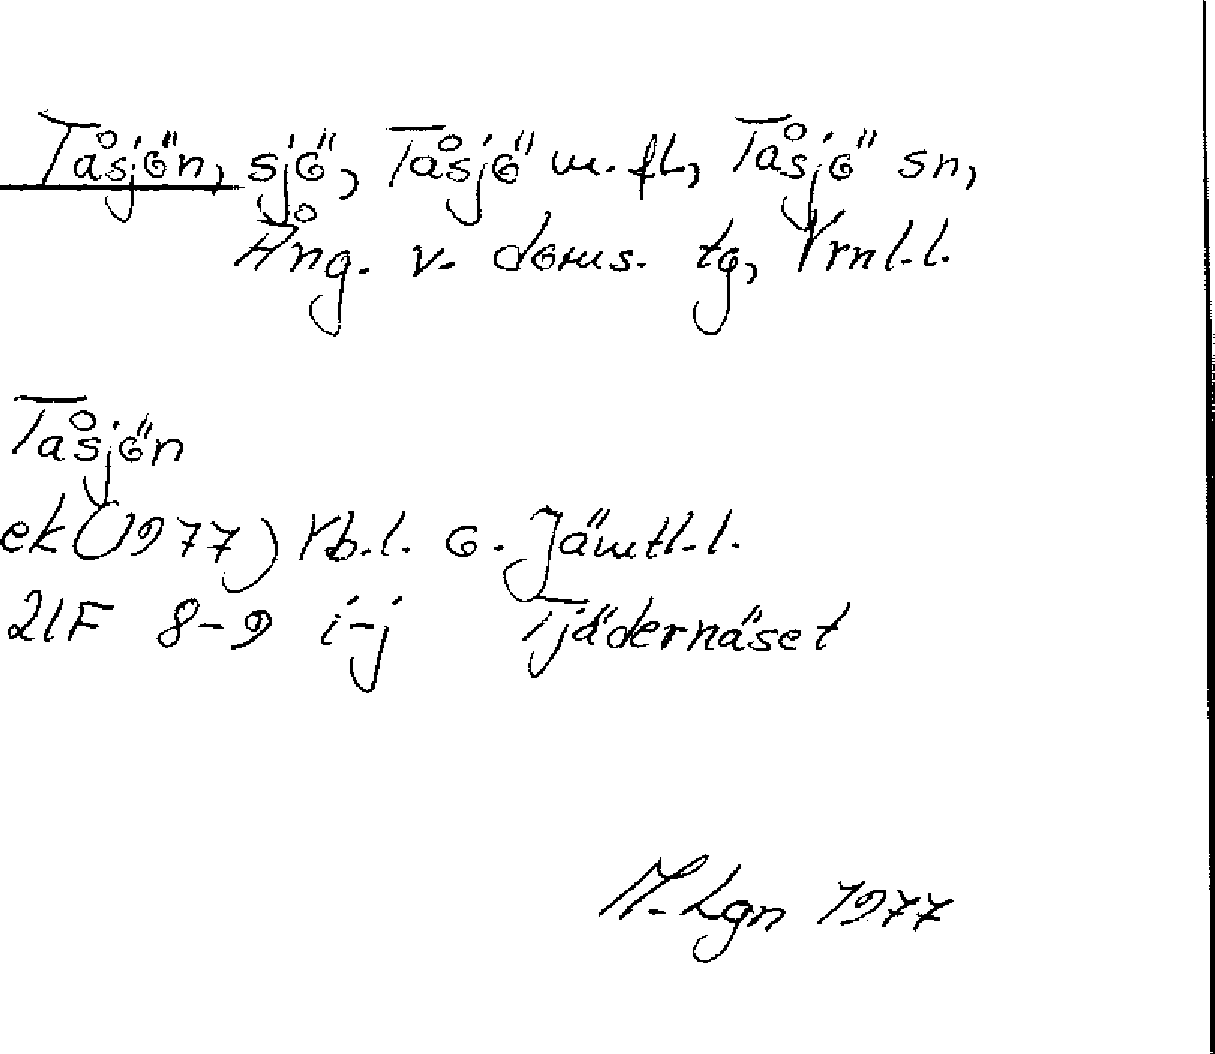 Tåsjön, sjö, Tåsjö m.fl., Tåsjö sn,
Ång. v. doms. tg, Vrnl.l.
Tåsjön
ek (1977) Vb.l. o. Jämtl.l.
21F 8-9 i-j Tjädernäset
M. Lgn 1977